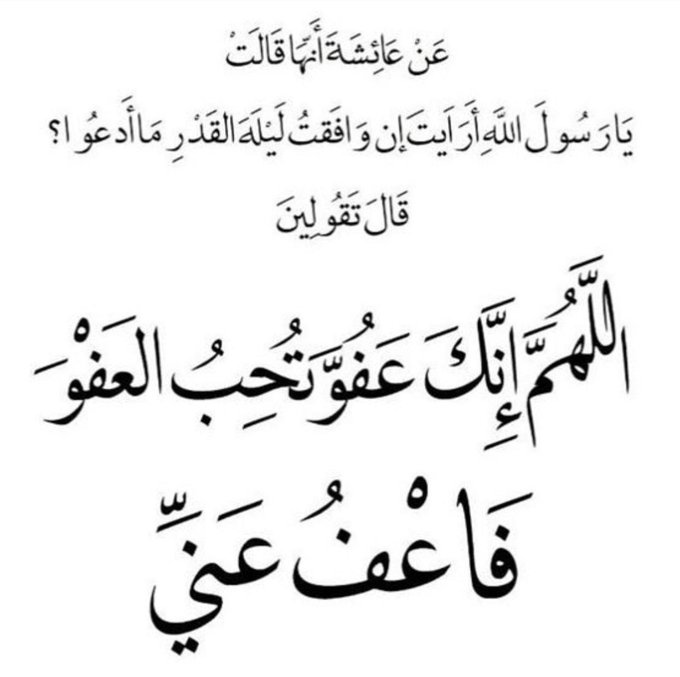 عَنْ عَائِشَةَ أَنَّهَا قَالَتْ
يَا رَسُولَ اللَّهِ أَرَايتَ إن وَافَقتُ لَيْلَةَ القَدْرِ مَا أَدعُوا؟
قَالَ تَقُولِينَ
اللَّهُمَّ إِنَّكَ عَفُوَّ تُحِبُ العَفْوَ
فَاعْفُ عَنيِّ